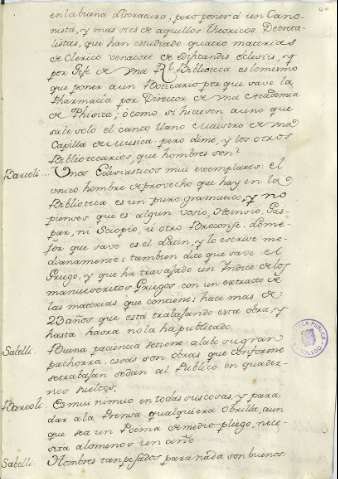 en la buena literatura, pero poner a un Cano-
nista, y mas si es de aquellos theoricos Decreta-
listas, que han estudiado quatro materias
de Clerico venatore de edificandis eclesiis, y
por Jefe de una Rl. Biblioteca es lo mismo
que poner a un Boticario por que save la
Pharmacia por Director de una Academia
de Phisica; o como si hiciesen a uno que
sabe solo el canto llano Maestro de una
Capilla de musica. pero dime, y los otros
Bibliotecarios, que hombres son?
Bartoli.. Unos Eclesiasticos mui exemplares: el
unico hombre de provecho que hay en la
Biblioteca es un puro gramatico, y no
pienses que es algun Vosio, Heinsio, Gas-
par, ni Sciopio, u otro Broconse. lo me-
jor que save es el latin, y lo escrive me-
dianamente: tambien dice que save el
Griego, y que ha travajado un Indice de los
manuescritos Griegos con un extracto de
las materias que contiene; hace mas de
23 años que está trabajando esta obra, y
hasta haora no la ha publicado.
Satelli. Buena paciencia se tiene alabo su gran
pachorra. esas son obras que conforme
se trabajan se dan al Publico en quader-
nos sueltos.
Bartoli Es mui nimio en todas sus cosas, y para
dar a la Prensa qualquiera Obrilla, aun
que sea un Poema de medio pliego, nece-
sita a lo menos un año.
Satelli Hombres tan pesados para nada son buenos.